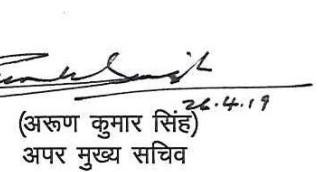 26.4.19
(अरूण कुमार सिंह)
अपर मुख्य सचिव